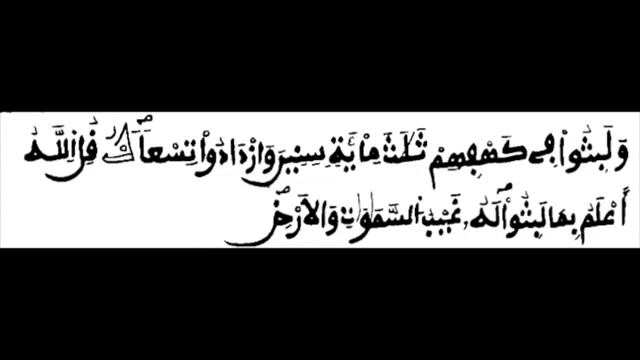 وَلَبِثُوا۟ فِے كَهْفِهِمْ ثَلَٰثَ مِا۟ئَةٖ سِنِينَ وَازْدَادُوا۟ تِسْعاٗۖ قُلِ اِ۬للَّهُ
أَعْلَمُ بِمَا لَبِثُوا۟ۖ لَهُۥ غَيْبُ اُ۬لسَّمَٰوَٰتِ وَالَارْضِۖ